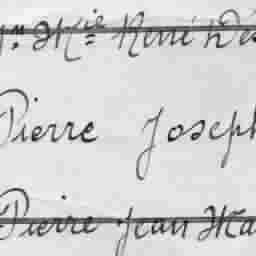 Jn Mie René Dés
Pierre Joseph
Pierre Jean Ma